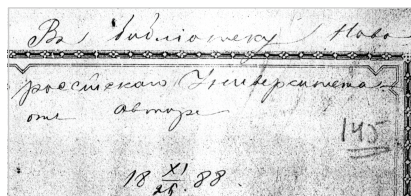 Въ библіотеку Ново
россійскаго Университета
отъ автора
145
18 XI/25 88.